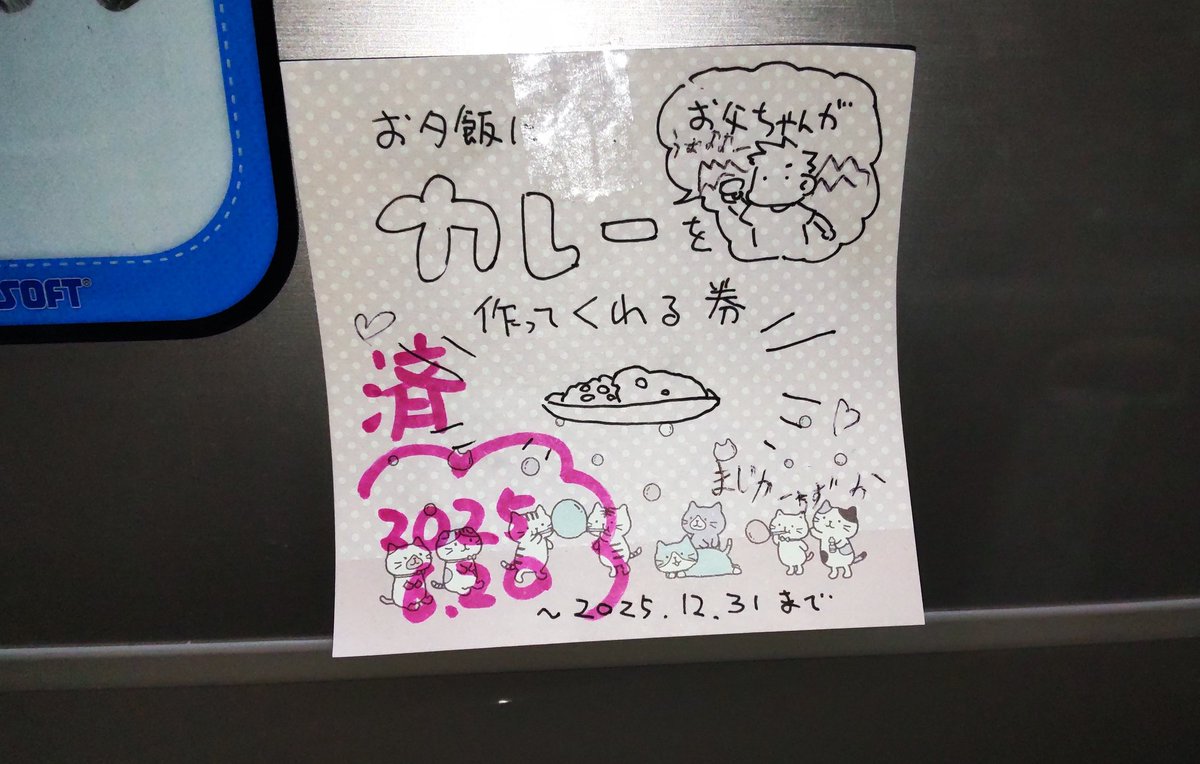 SOFT
お夕飯に
お父ちゃんが
カレーを
作ってくれる券
済
2025
8.26
まじか
~2025.12.31まで